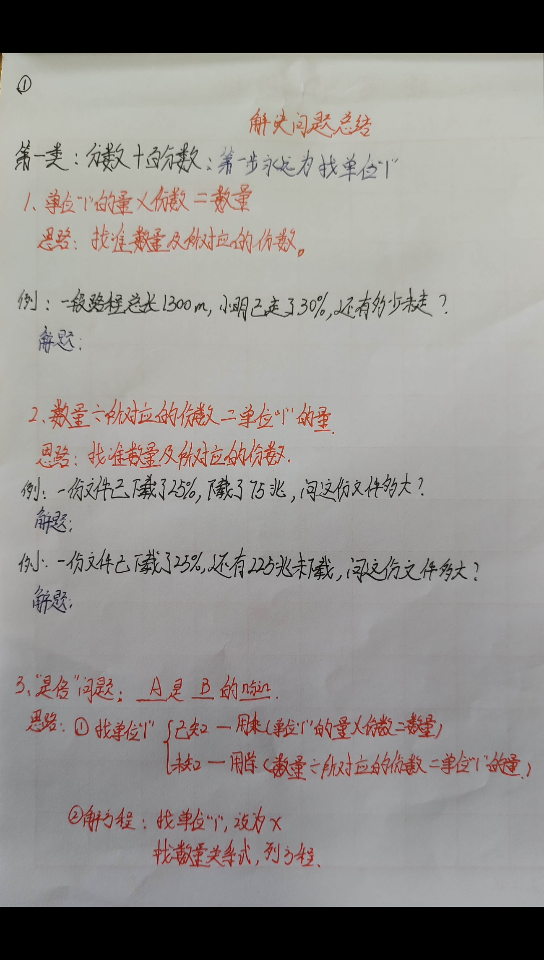 ①
解决问题总结
第一类：分数+百分数：第一步永远为找单位“1”
1、单位“1”的量×份数=数量
思路：找准数量及所对应的份数。
例：一段路程总长1300m，小明已走了30%，还有多少未走？
解题：
2、数量÷所对应的份数=单位“1”的量
思路：找准数量及所对应的份数.
例：一份文件已下载了25%，下载了75兆，问这份文件多大？
解题：
例：一份文件已下载了25%，还有225兆未下载，问这份文件多大？
解题：
3、“是占”问题： A 是 B 的
思路：①找单位“1” 已知—用乘(单位“1”的量×份数=数量)
未知—用除(数量÷所对应的份数=单位“1”的量)
②解方程：找单位“1”，设为x
找数量关系式，列方程.